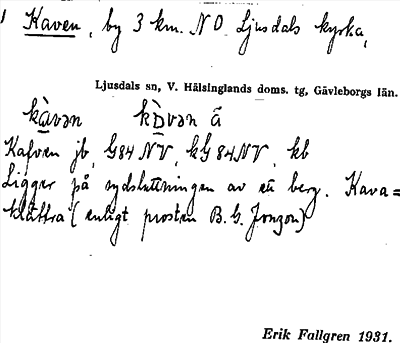 Kaven, by 3 km. NO Ljusdals kyrka,
Ljusdals sn, V. Hälsinglands doms. tg, Gävleborgs län.
kàvən kɒ̀vən ā
Kafven jb, G84 NV, kG84NV, kb
Ligger på sydsluttningen av ett berg. Kava=
klättra (enligt prosten B. G. Jonzon)
Erik Fallgren 1931.